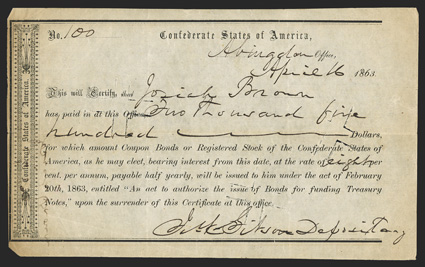 No. 100 Confederate States of America,
Abingdon Office,
April 16 1863.
This will Certify, that Josiah Brown
has paid in at this Office Two Thousand five
hundred Dollars,
for which amount Coupon Bonds or Registered Stock of the Confederate States of
America, as he may elect, bearing interest from this date, at the rate of eight per
cent. per annum, payable half yearly, will be issued to him under the act of February
20th, 1863, entitled "An act to authorize the issue of Bonds for funding Treasury
Notes," upon the surrender of this Certificate at this office.
Depositary
Confederate States of America.